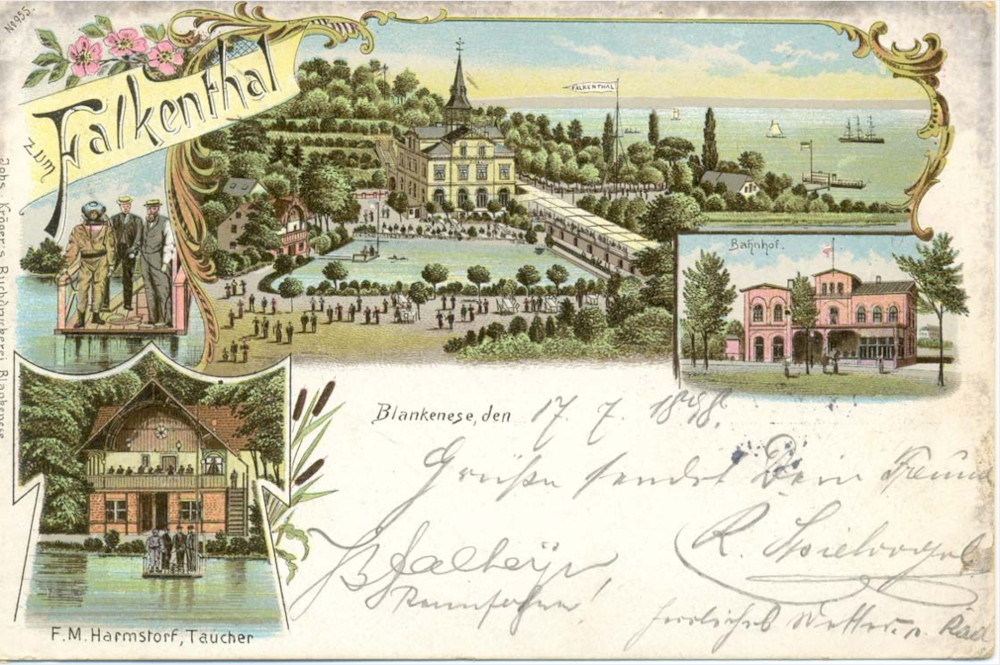 No 955.
zum
Falkenthal
FALKENTHAL
Bahnhof.
Johs. Kröger's Buchdruckerei Blankenese
Blankenese, den 17. 7. 1898.
Grüße sendet Dein Freund
R.
herrliches Wetter
F.M. Harmstorf, Taucher